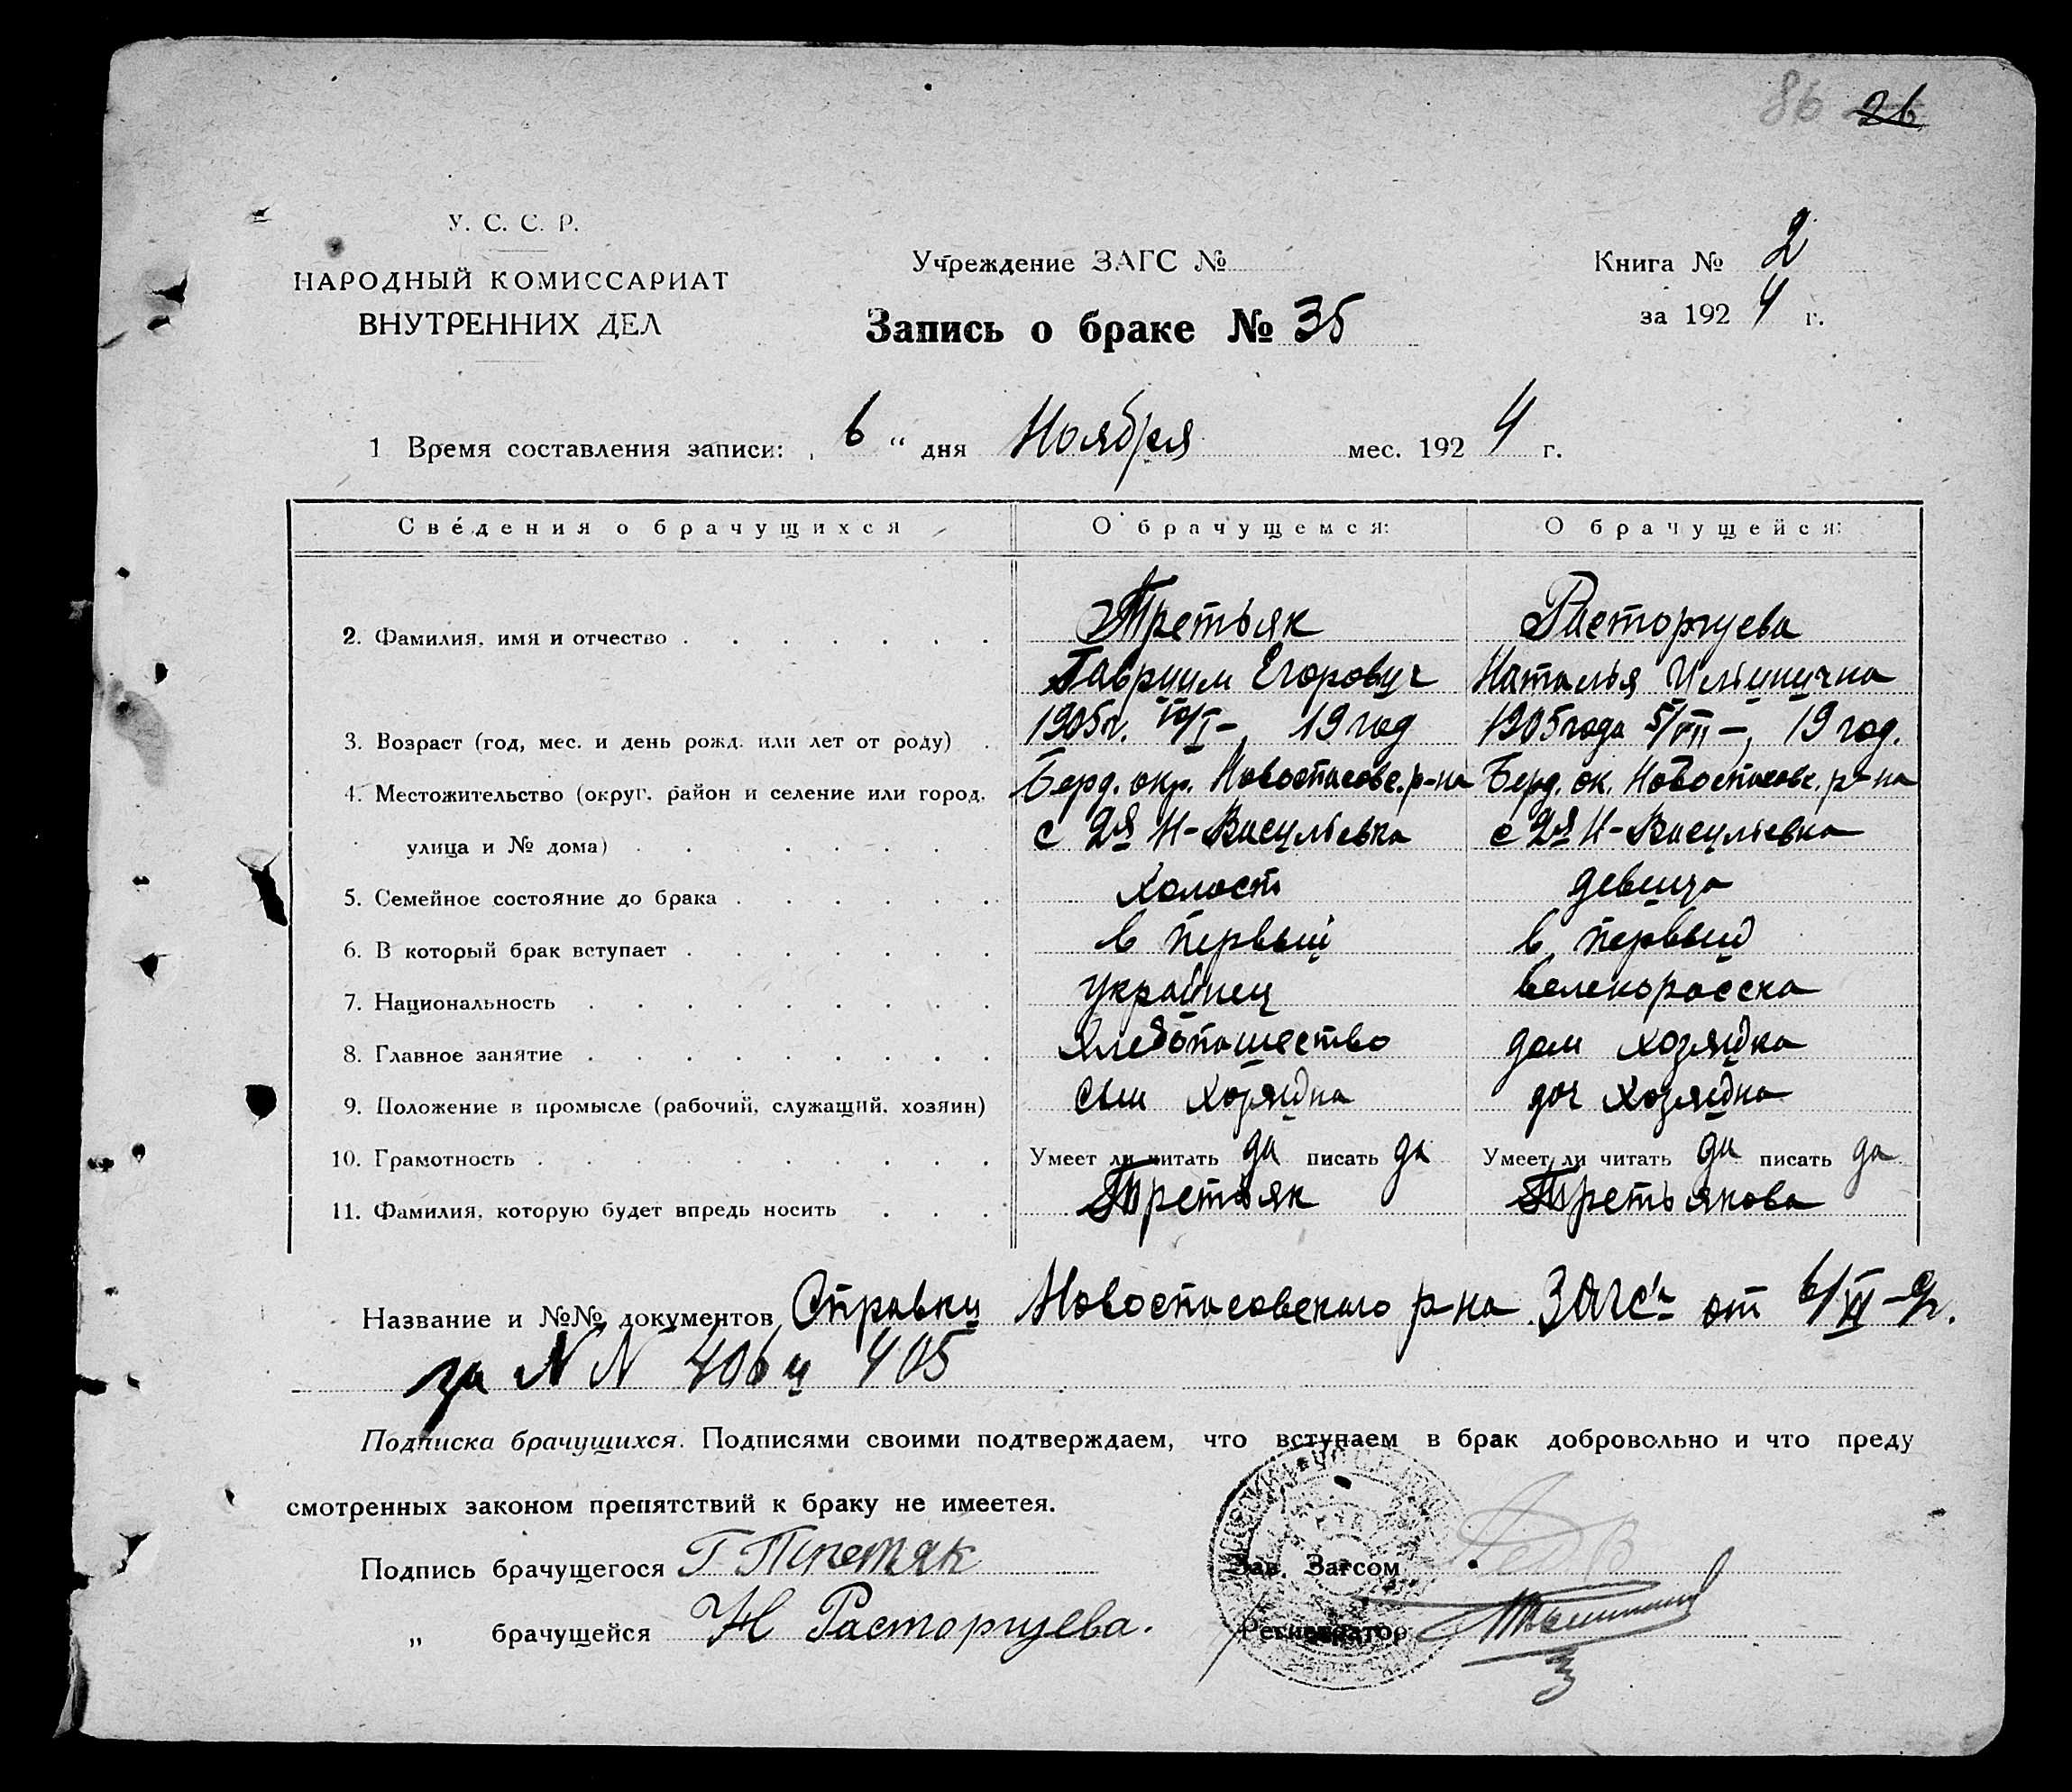 86 26
У. С. С. Р.
НАРОДНЫЙ КОМИССАРИАТ
ВНУТРЕННИХ ДЕЛ
Учреждение ЗАГС №
Запись о браке № 35
Книга № 2
за 1924 г.
1 Время составления записи: „ 6 “ дня Ноября мес. 1924 г.
Сведения о брачущихся О брачущемся: О брачущейся:
2. Фамилия, имя и отчество Третьяк Расторгуева
Гавриил Егорович Наталья Ильинична
3. Возраст (год, мес. и день рожд. или лет от роду) 1905 г. 10/I –, 19 год 1905 года 5/VII –, 19 год.
4. Местожительство (округ, район и селение или город, Берд. окр. Новоспасовс. р-на Берд. ок. Новоспасовс. р-на
улица и № дома) с 2я Н-Васильевка с 2я Н-Васильевка
5. Семейное состояние до брака холост девица
6. В который брак вступает в первый в первый
7. Национальность украинец велекоросска
8. Главное занятие хлебопашество дом хозяйка
9. Положение в промысле (рабочий, служащий, хозяин) сын хозяйна доч хозяйна
10. Грамотность Умеет ли читать да писать да Умеет ли читать да писать да
11. Фамилия, которую будет впредь носить Третьяк Третьякова
Название и №№ документов Справки Новоспасовского р-на ЗАГС'а от 6/XI –
за N N 406 и 405
Подписка брачущихся. Подписями своими подтверждаем, что вступаем в брак добровольно и что преду
смотренных законом препятствий к браку не имеется.
Подпись брачущегося Г Третяк
„ брачущейся Н Расторгуева.
Зав. Загсом
Регистратор